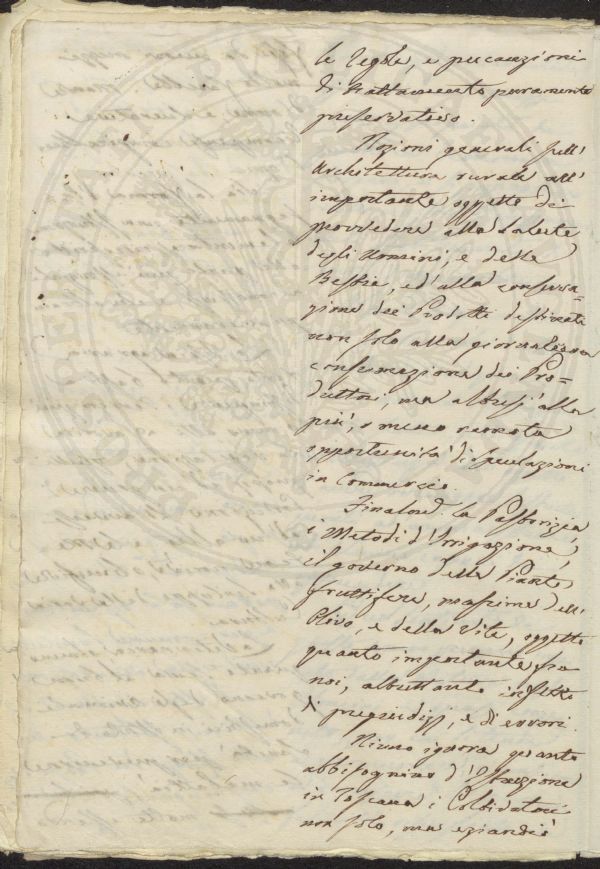 le regole, e precauzioni
di trattamento puramente
preservativo.
Nozioni generali sull'
Architettura rurale all'
importante oggetto di
provvedere alla salute
degli Uomini, e delle
Bestie, ed alla conserva=
zione dei Prodotti destinati
non solo alla giornaliera
consumazione dei Pro=
duttori, ma altresì alla
più, o meno remota
opportunità di speculazioni
in Commercio.
Finalm.e la Pastorizia
i Metodi d'Irrigazione,
il governo delle Piante
fruttifere, massime dell'
Olivo, e della Vite, oggetto
quanto importante fra
noi, altrettanto infetto
di pregiudizj, e di errori.
Niuno ignora quanto
abbisognino d'Istruzione
in Toscana i Coltivatori
non solo, ma eziandio